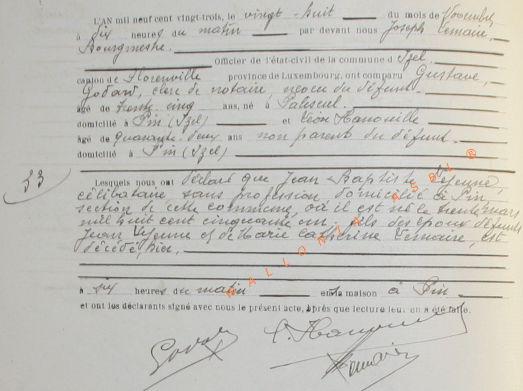 L'AN mil neuf cent vingt-trois, le vingt-huit du mois de Novembre
à dix heures du matin par devant nous Joseph Lemaire,
Bourgmestre
Officier de l'état-civil de la commune d'Izel,
canton de Florenville province de Luxembourg, ont comparu Gustave
Godard, clerc de notaire, neveu du défunt
âgé de trente cinq ans, né à Paliseul
domicilié à Pin (Izel) et Léon Hanouille
âgé de quarante deux ans non parent du défunt
domicilié à Pin (Izel)
33
Lesquels nous ont déclaré que Jean-Baptiste Lejeune,
célibataire sans profession domicilié à Pin
section de cette commune où il est né le trente mars
mil huit cent cinquante fils des époux défunts
Jean Lejeune et de Marie Catherine Lemaire, est
décédé hier
à six heures du matin en sa maison à Pin
et ont les déclarants signé avec nous le présent acte, après que lecture leur en a été faite.
Godard L. Hanouille
Lemaire
WALLONIA ASBL ®